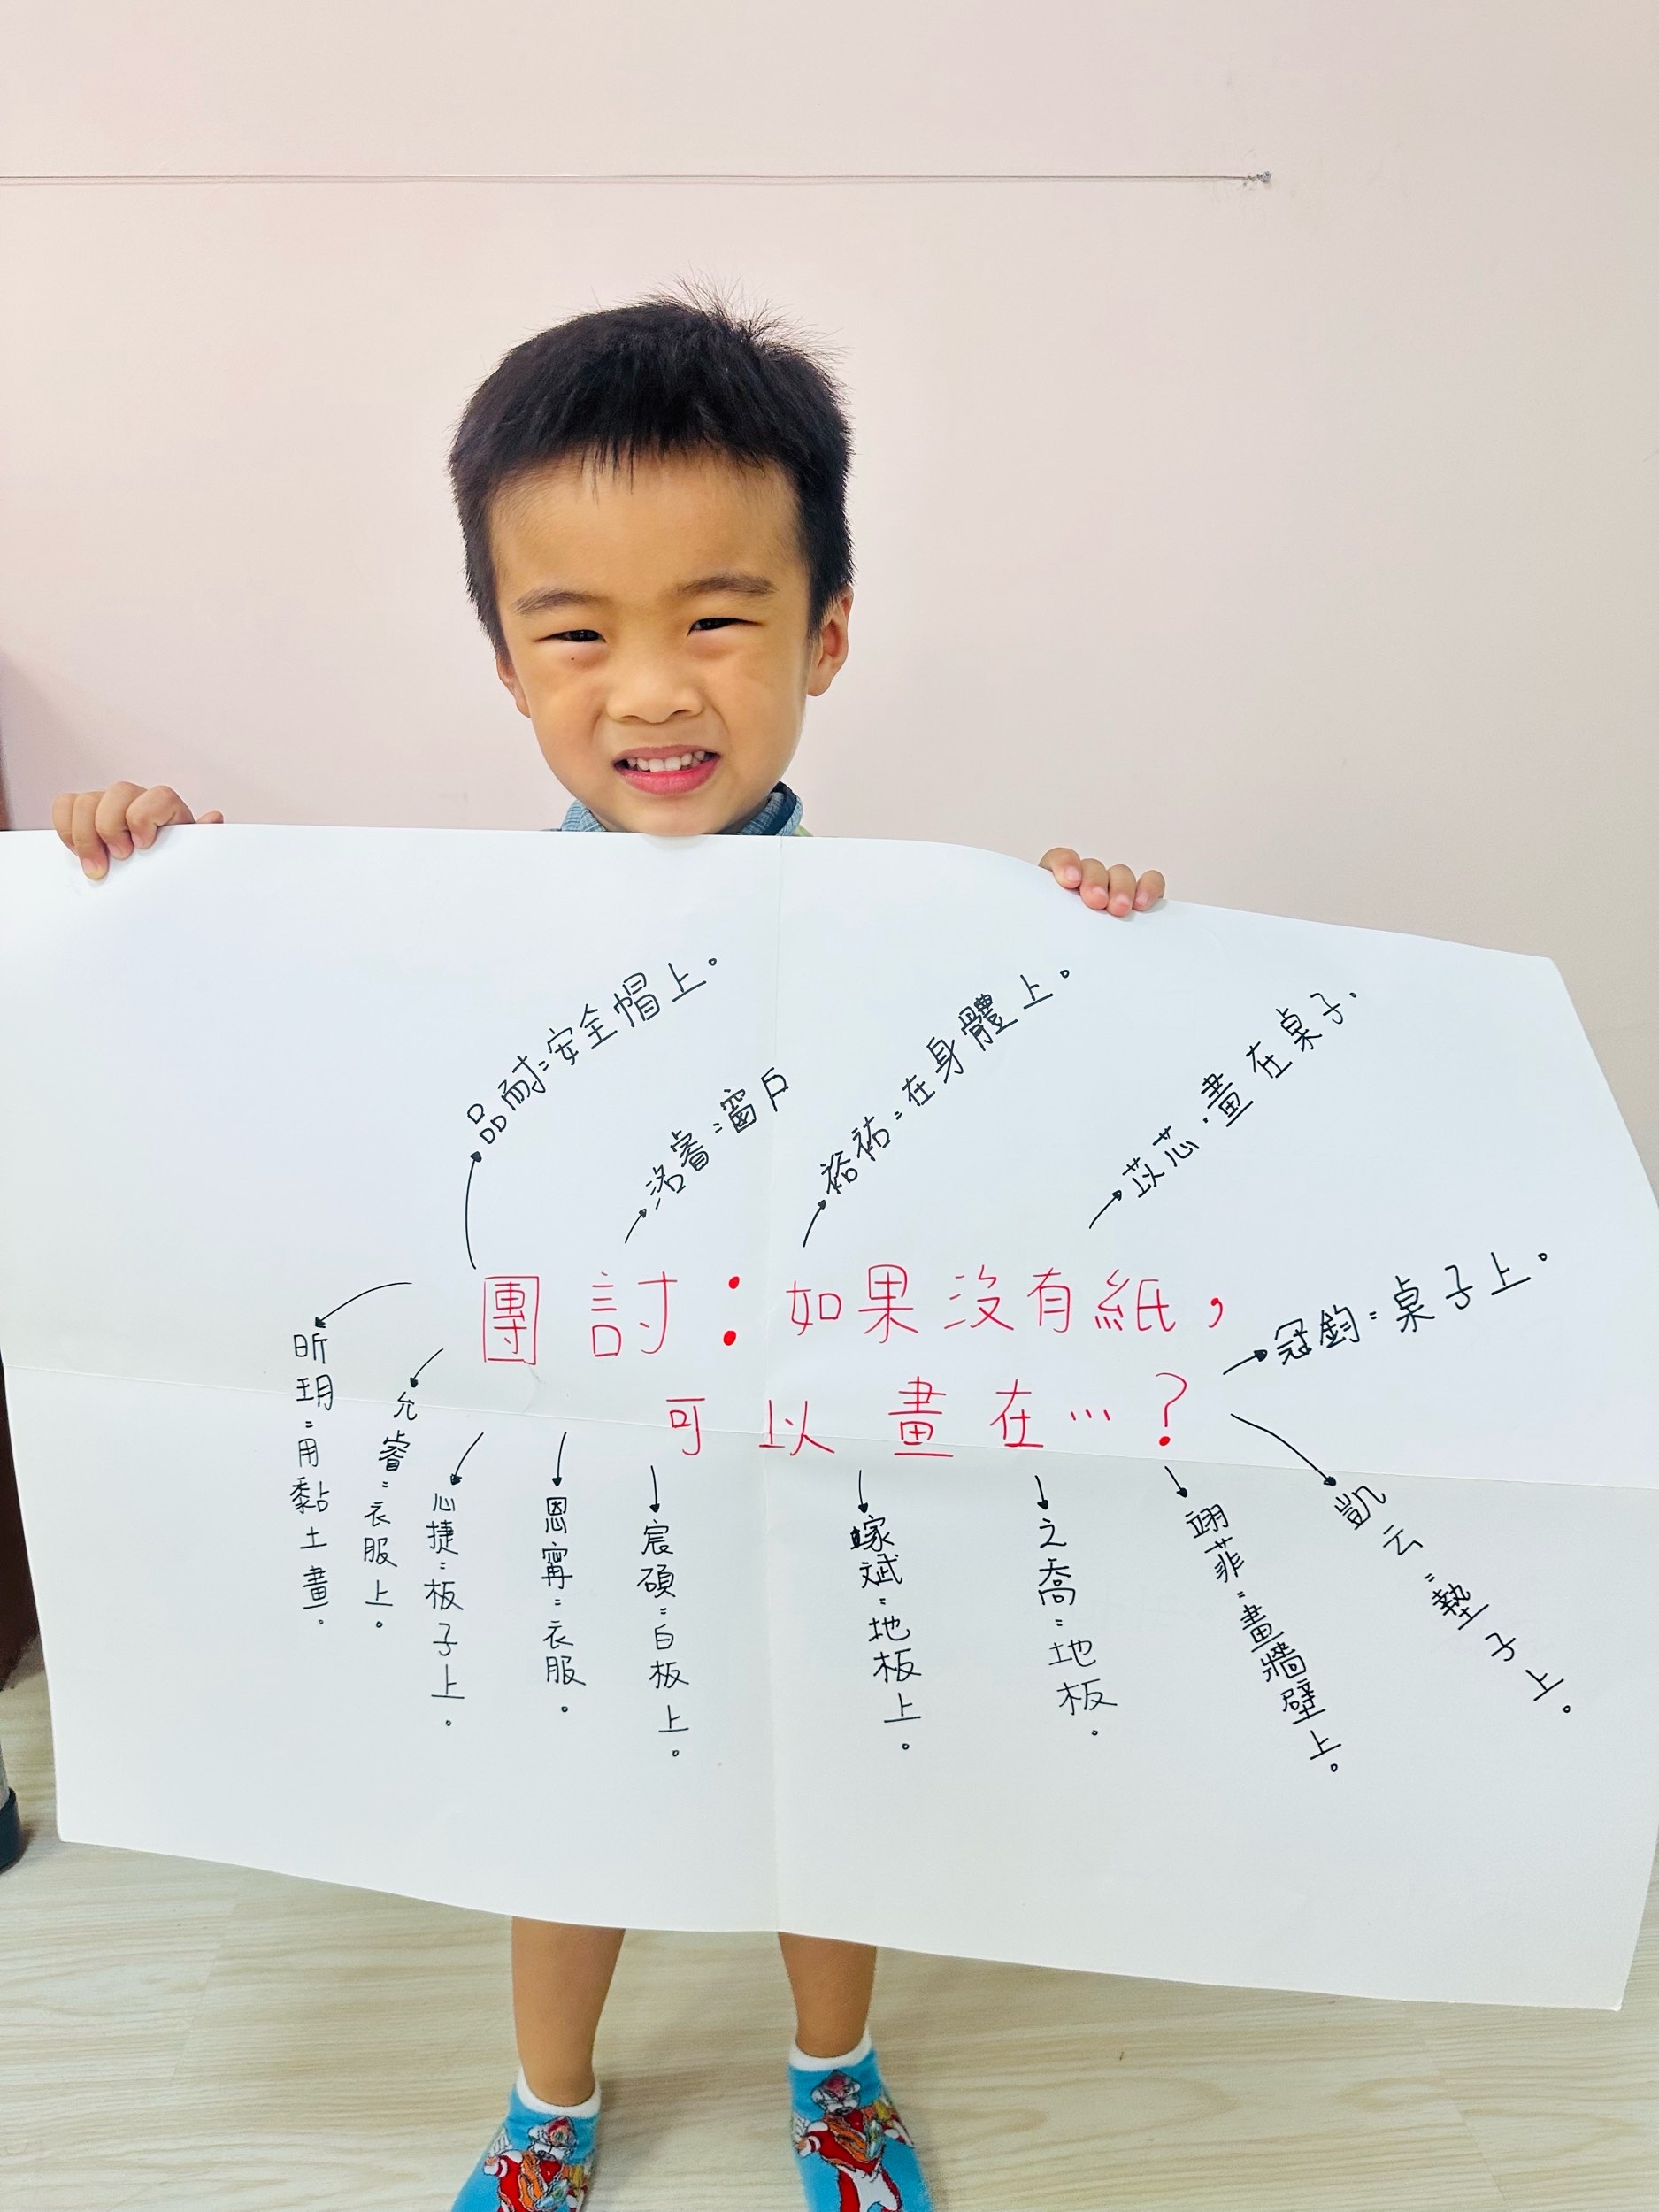 團討：如果沒有紙，
可以畫在…？
品耐：安全帽上。
洛睿：窗戶
裕祐：在身體上。
苡芯：畫在桌子.
冠鈞：桌子上。
凱云：墊子上。
翊菲：畫牆壁上。
之喬：地板。
斌：地板上。
宸碩：白板上。
恩甯：衣服。
心捷：板子上。
允睿：衣服上。
昕玥：用黏土畫.